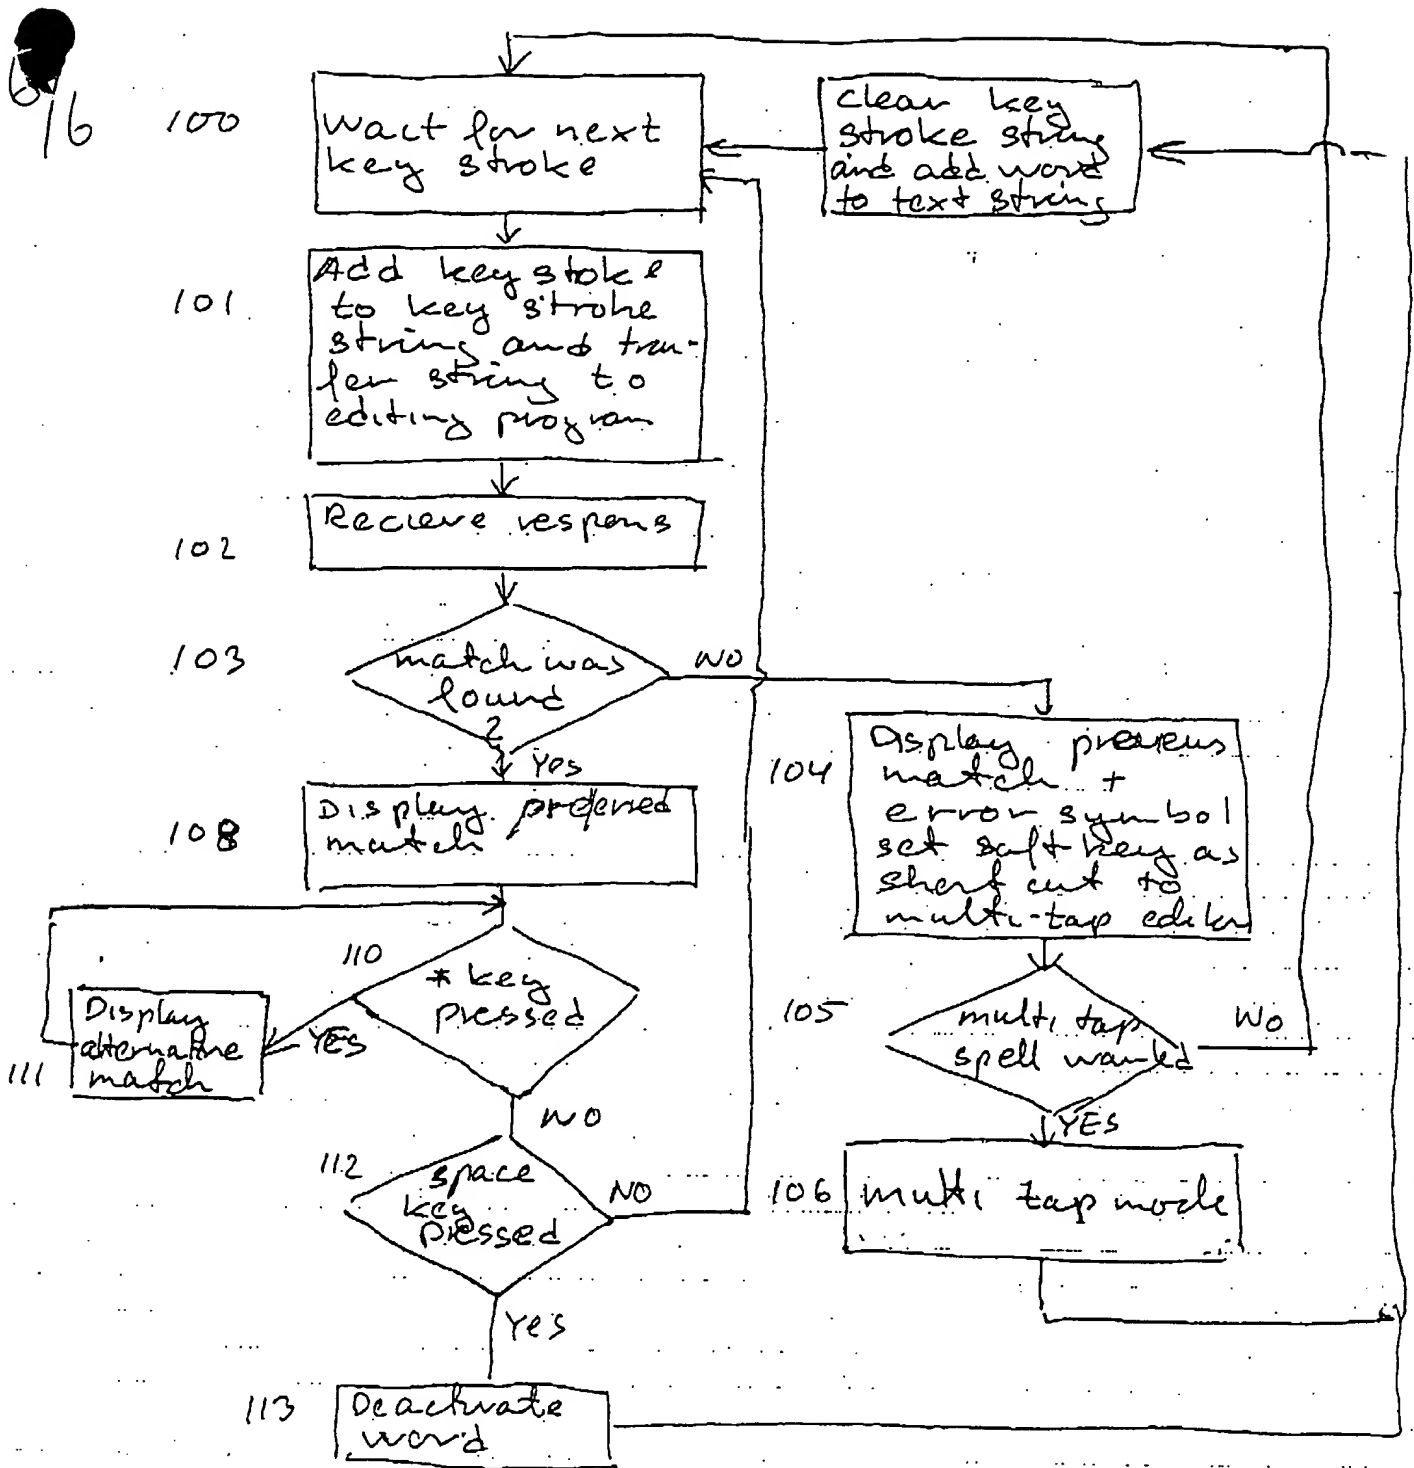 6/16
100
Wait for next
key stroke
clear key
stroke string
and add word
to text string
101
Add key stoke
to key stroke
string and tran-
fer string to
editing program
102
Recieve respons
103
match was
found
?
NO
Yes
104
Display previous
match +
error symbol
set soft key as
short cut to
multi-tap editor
108
Display preferred
match
110
* key
pressed
YES
NO
111
Display
alternative
match
105
multi tap
spell wanted
NO
YES
106
multi tap mode
112
space
key
pressed
NO
Yes
113
Deactivate
word